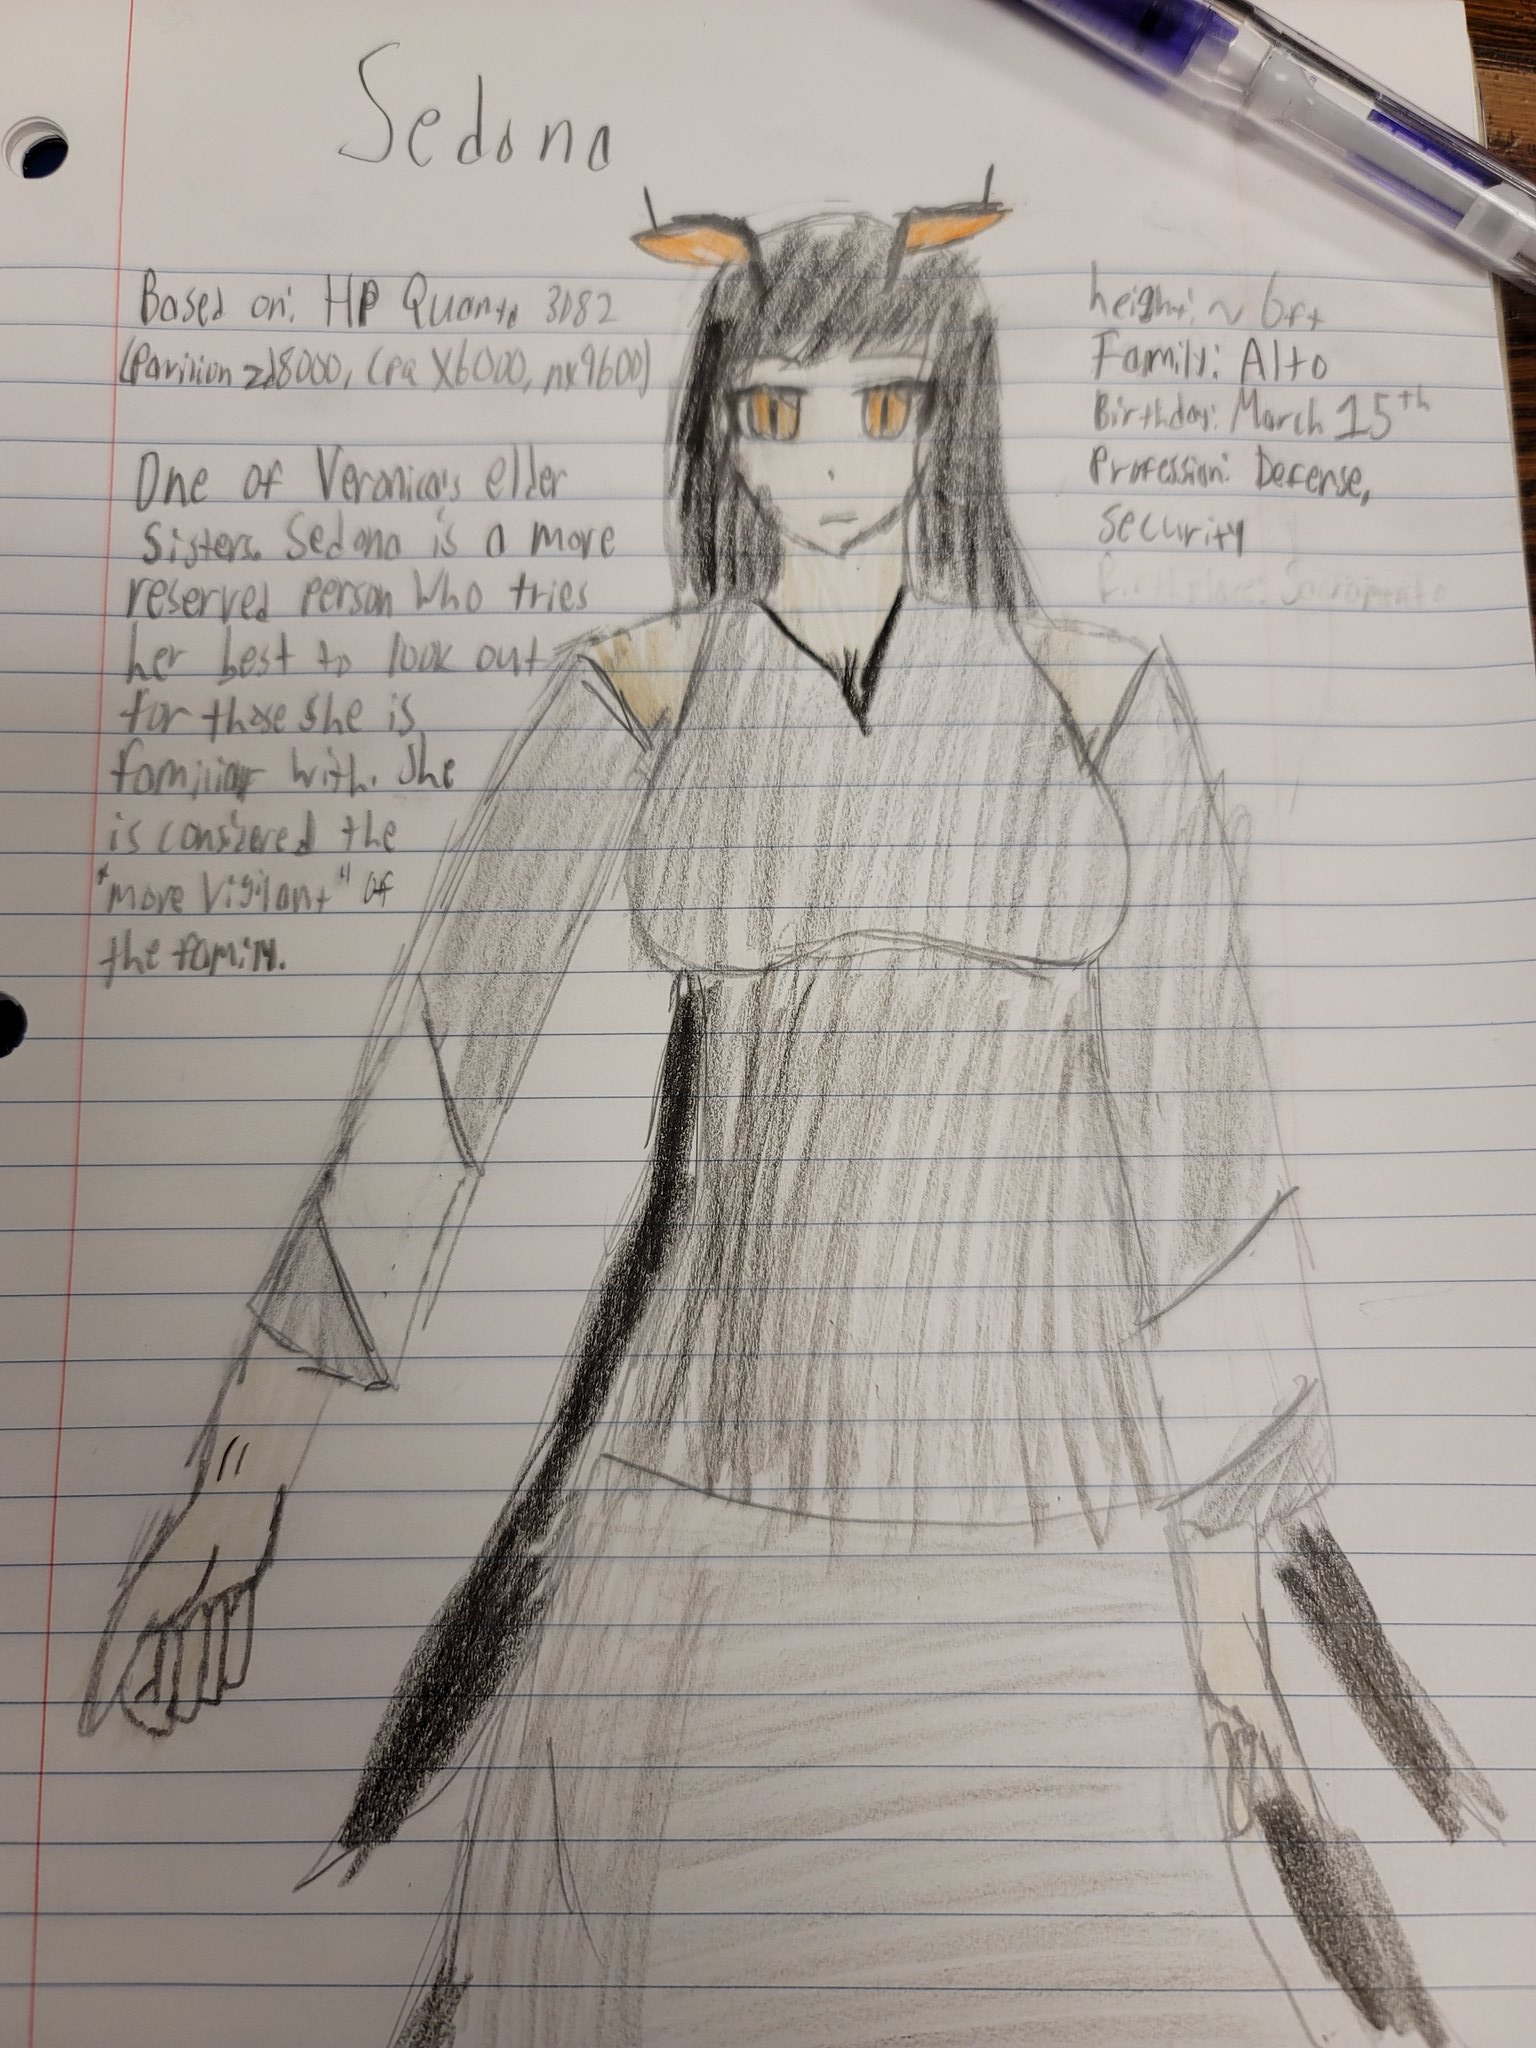 Sedona
Based on: HP Quanta 3082
(Pavilion zd8000, Cpq X6000, nx9600)
One of Veronica's elder
sisters. Sedona is a more
reserved person who tries
her best to look out
for those she is
familiar with. She
is considered the
"more vigilant" of
the family.
height: ~ 6ft
Family: Alto
Birthday: March 15th
Profession: Defense,
security
Birthplace: Sacramento